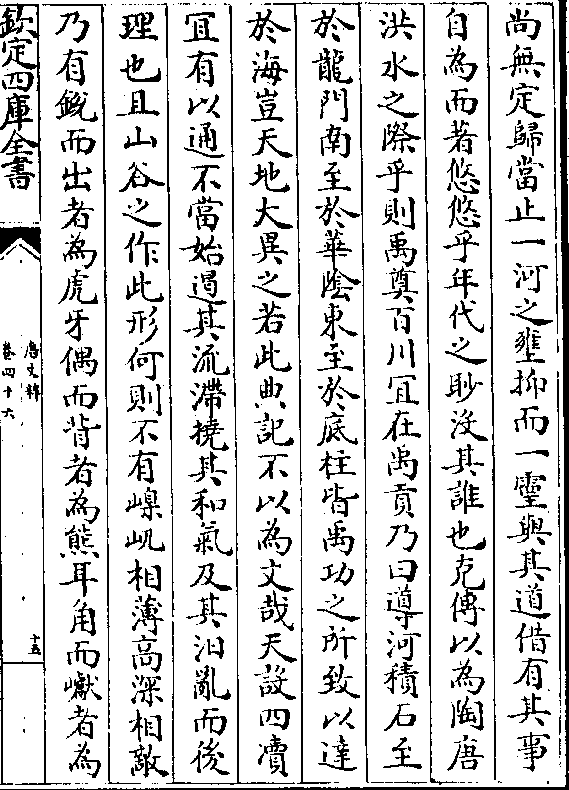 尚無定歸當止一河之壅抑而一靈與其道借有其事
自為而著悠悠乎年代之眇没其誰也克傳以為陶唐
洪水之際乎則禹奠百川宜在禹貢乃曰導河積石至
於龍門南至於華陰東至於底柱皆禹功之所致以達
於海豈天地大異之若此典記不以為文哉天設四瀆
宜有以通不當始遏其流滯撓其和氣及其汨亂而後
理也且山谷之作此形何則不有嵲屼相薄高深相敵
乃有鋭而出者為虎牙偶而背者為熊耳角而巘者為
欽定四庫全書
唐文粹
卷四十六
十五